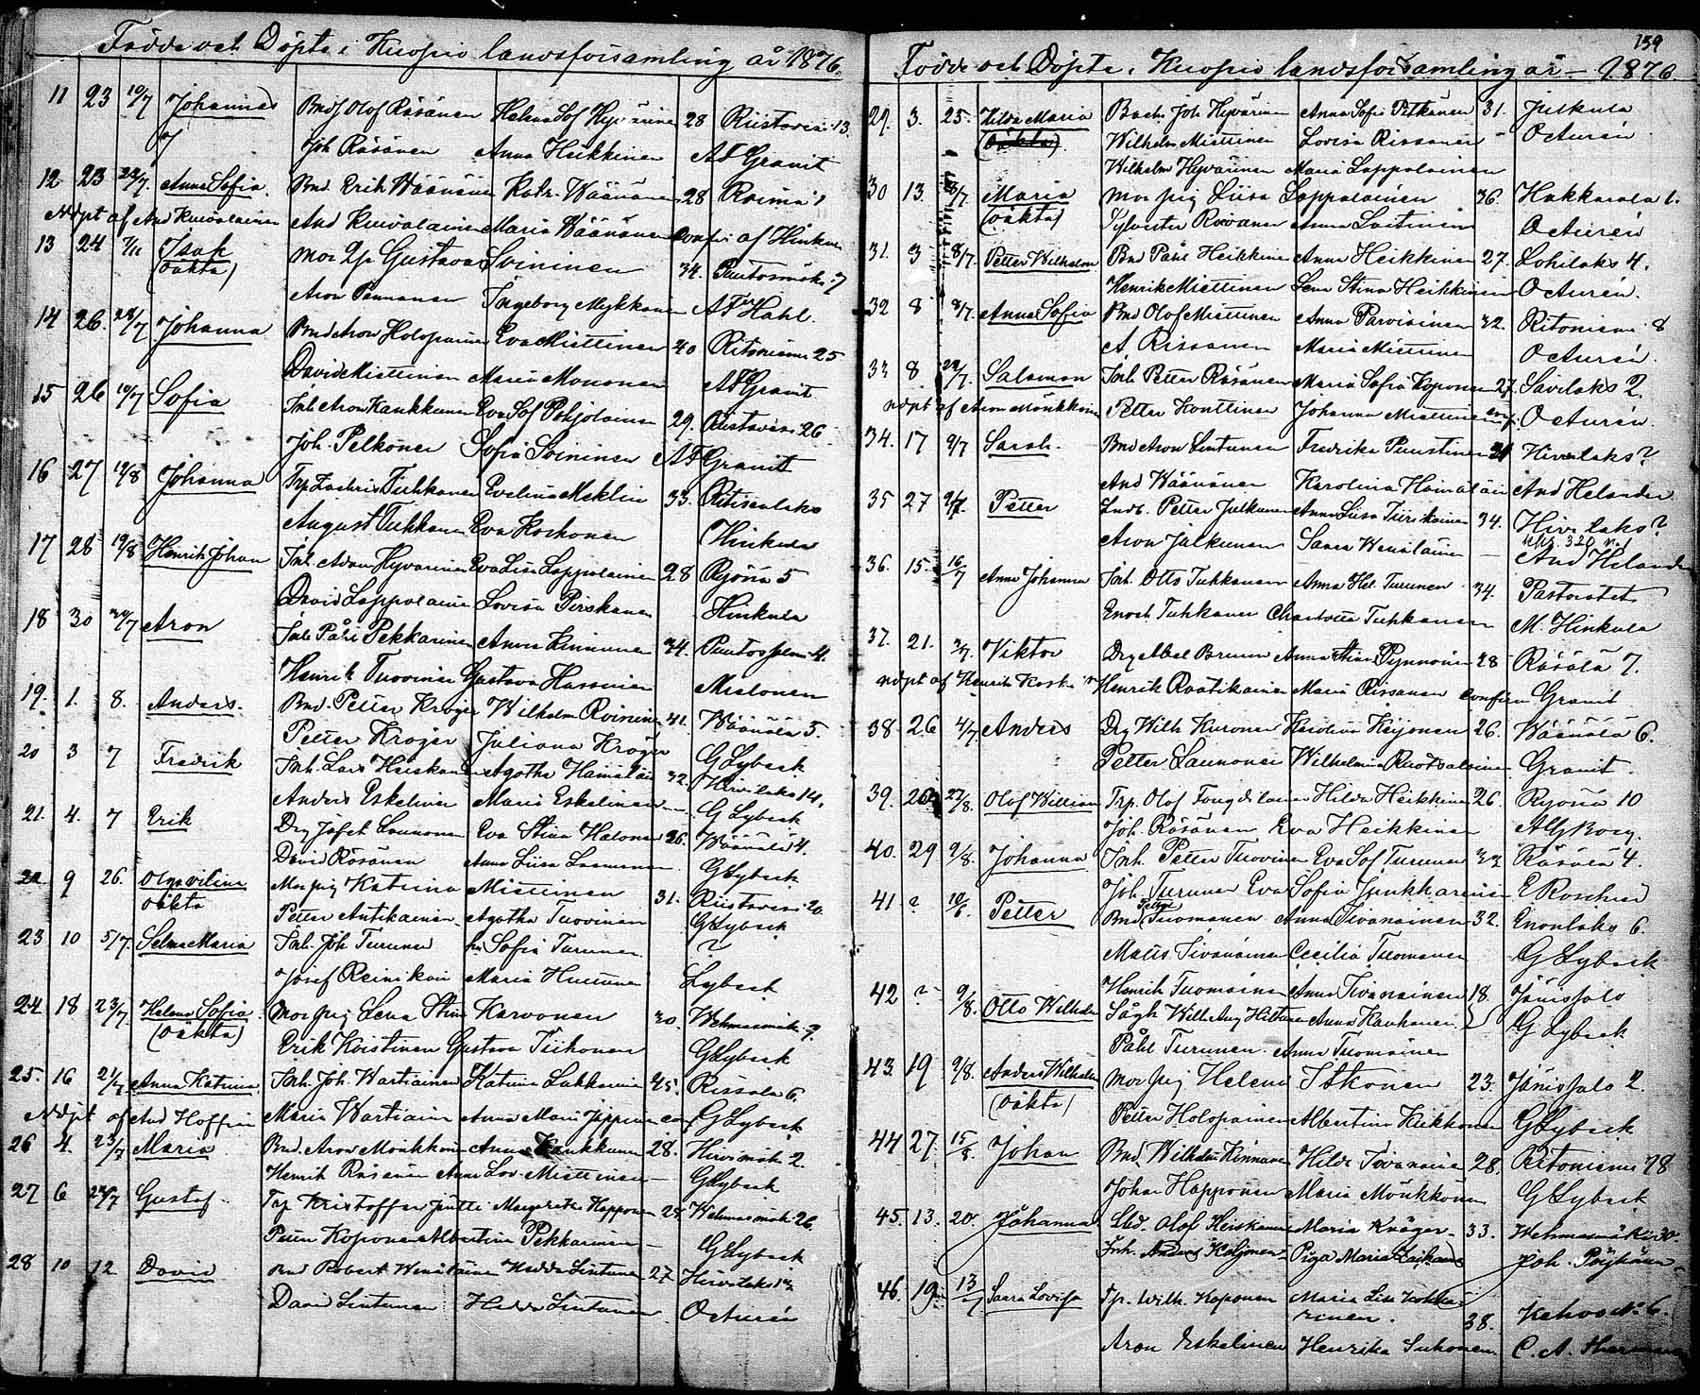 Födde och Döpte i Kuopio landsförsamling år 1876.
11 23 19/7 Johannes Bndf Olof Räsänen Helena Sof Hyvärinen 28 Riistavesi 13.
Joh Räsänen Anna Heikkinen AF Granit
12 23 Anna Sofia. Bnd. Erik Väänänen Katr. Väänänen 28 Roima 1
Nödpt af And Kuivalainen And Kuivalainen Maria Väänänen Conf. af Hinkula
13 24 Isak Mor Gustava Soininen 34. Puutosmäki 7
(oäkta)
Aron Pennanen Ingeborg Mykkänen AF Hahl.
14 26. 28/7 Johanna Bnd Aron Holopainen Eva Miettinen 40 Ritoniemi 25
David Miettinen Maria Mononen AF Granit
15 26 19/7 Sofia Inh Aron Kaukkunen Eva Sof Pohjolainen 29. Riistavesi 26
Joh. Pelkonen Sofia Soininen AF Granit
16 27. 19/8 Johanna Trp Zachris Tuhkanen Evelina Meklin 33. Ritisenlaks
August Tuhkanen Eva Korhonen Hinkula
17 28 19/8 Henrik Johan Inh. Adam Hyvärinen Eva Lisa Lappalainen 28 Ryönä 5
David Lappalainen Lovisa Pirskanen Hinkula
18 30 30/7 Aron Inh Påhl Pekkarinen Anna Kinnunen 34. Puutossalmi 4.
Henrik Tuovinen Gustava Hassinen Mielonen
19. 1. 8. Anders. Bnd. Petter Kröger Wilhelm. Roininen 41. Väänälä 5.
Petter Kröger Juliana Kröger G Lybeck
20 3 7 Fredrik Inh. Lars Heiskanen Agatha Hämäläinen 32. Hirvilaks 14.
Anders Eskelinen Maria Eskelinen G Lybeck
21. 4. 7 Erik Drg Josef Lounonen Eva Stina Halonen 26. Väänälä 4.
David Räsänen Anna Liisa Laamanen G Lybeck
22. 9 26. Olga Vilina Mor pig Katrina Miettinen 31. Riistavesi 20
oäkta Petter Antikainen Agatha Tuovinen G Lybeck
23 10 5/7. Selma Maria Inh. Joh Turunen h. Sofia Turunen ?
Josef Reinikain Maria Huttunen Lybeck
24 18 23/7. Helena Sofia Mor pig Lena Stina Karvonen 30. Vehmasmäk. 9
(oäkta) Erik Koistinen Gustava Tiihonen G Lybeck
25. 16 21/7 Anna Katrina Inh. Joh. Vartiainen Katrina Lakkarinen 45. Rissala 6
Nödpt af And Hoffrén Maria Vartiainen Anna Maria Jäppinen conf G Lybeck
26 4. 23/7 Maria Bnd. Aron Mönkkönen Anna Kaukkunen 28. Hirvimäki 2.
Henrik Räsänen Anna Lov. Miettinen G Lybeck
27 6 24/7 Gustaf Trp Kristoffer Jutti Margareta Happonen 28. Vehmasmäk 26
Petter Koponen Albertina Pekkarinen G Lybeck
28 10 12 David Bnd Robert Venäläinen Hedda Lintunen 27 Hirvilaks 12
David Lintunen Hedda Lintunen O Aurén
159
Födde och Döpte i Kuopio landsförsamling år 1876
29. 3. 25. Hilda Maria Bach. Joh Hyvärinen Anna Sofia Pitkänen 31. Julkula
(oäkta) Wilhelm Miettinen Lovisa Rissanen O Aurén
Wilhelm Hyvärinen Maria Lappalainen
30 13. Maria Mor pig Liisa Lappalainen 36. Hakkarala 1.
(oäkta) Sylvester Rovanen Anna Laitinen O Aurén
31. 3 8/7. Petter Wilhelm Bnd Påhl Heikkinen Anna Heikkinen 27. Lohilaks 4.
Henrik Miettinen Lena Stina Heikkinen O Aurén.
32 8 8/7. Anna Sofia Bnd Olof Miettinen Anna Parviainen 32. Ritoniemi 8
A Rissanen Maria Miettinen O Aurén.
33 8 22/7. Salomon Inh. Petter Räsänen Maria Sofia Koponen 27 Savilaks 2.
nödpt af Aron Mönkkönen Petter Konttinen Johanna Miettinen conf. O Aurén.
34. 17 9/7 Sarah. Bnd Aron Lintunen Fredrika Puustinen 21 Hirvilaks ?
And Väänänen Karolina Hämäläin And Helander
35 27 9/7. Petter Lndb. Petter Julkunen Anna Liisa Tiirikainen 34. Hirvilaks ?
Aron Julkunen Saara Venäläinen And Helander
36. 15. 16/7 Anna Johanna Inh. Otto Tuhkanen Anna Hel. Turunen 34. Pastoratet
Enoch Tuhkanen Charlotta Tuhkanen M. Hinkula
37. 21. 2/7. Viktor Drg Abel Brunn Anna Stina Pynnönen 28 Räsälä 7.
nödpt af Henrik Koskinen Henrik Raatikainen Maria Rissanen confirm Granit
38. 26 4/7 Anders Drg Wilh Kuronen Karolina Keijonen 26. Väänälä 6.
Petter Launonen Wilhelmina Ruotsalainen Granit.
39. 26 27/8. Olof William Trp. Olof Tengdilainen Hilda Heikkinen 26. Ryönä 10
Joh. Räsänen Eva Heikkinen A G Borg.
40. 29 9/8. Johanna Inh. Petter Tuovinen Eva Sof Turunen 32 Räsälä 4.
Joh. Turunen Eva Sofia Junkkarinen E Roschier
41. ? 10/8. Petter Bnd Petter Tuomanen Anna Iivanainen 32. Enonlaks 6.
Matts Iivanainen Cecilia Tuomanen G Lybeck
42 ? 9/8. Otto Wilhelm Henrik Tuomainen Anna Iivanainen 18. Jänissalo
Lägh Wilh Aug Hiltunen Anna Kauhanen G Lybeck
Påhl Turunen. Anna Tuomainen
43. 19 9/8. Anders Wilhelm Mor pig Helena Itkonen 23. Jänissalo 2.
(oäkta) Petter Holopainen Albertina Kiekkonen G Lybeck
44 27. 15/8. Johan Bnd. Wilhelm Kinnunen Hilda Iivanainen 28. Ritoniemi 28
Johan Happonen Maria Mönkkönen G Lybeck
45. 13. 20. Johanna Sld. Olof Heiskanen Maria Kröger. 33. Vehmasmäki 30
Inh. Anders Koljonen Piga Maria Joh. Pöyhönen
46. 19 13/7 Saara Lovisa Tp. Wilh. Koponen Maria Lisa Kokkarinen. 38. Kehvo N:o 6.
Aron Eskelinen Henrika Suhonen. C. A.